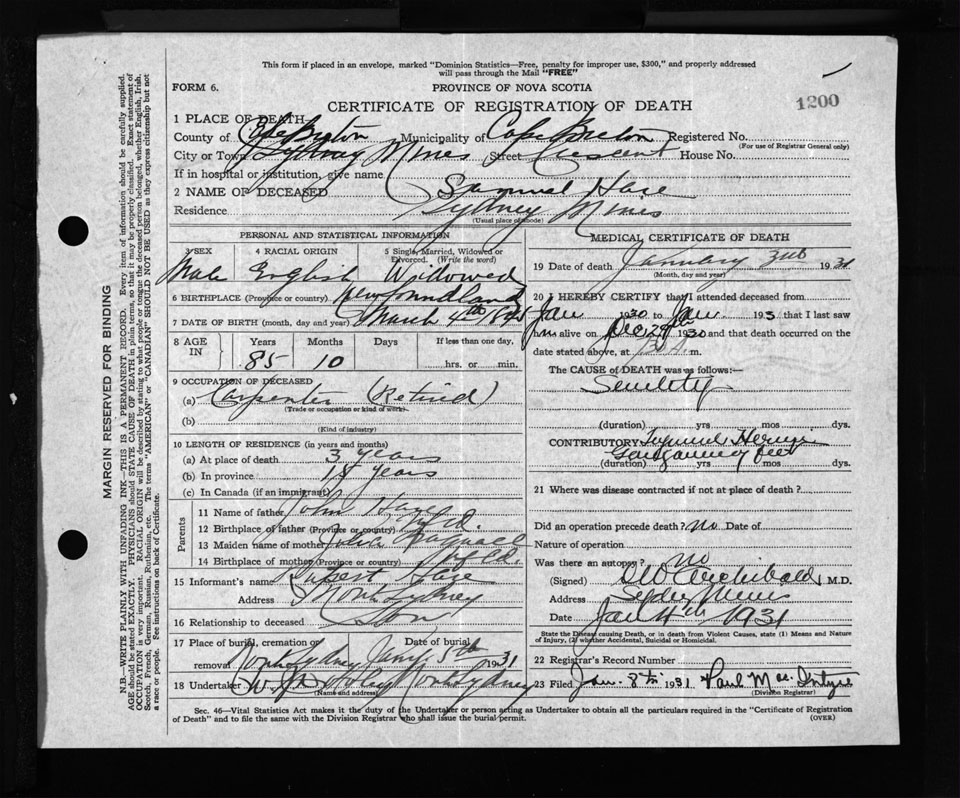 This form if placed in an envelope, marked "Dominion Statistics—Free, penalty for improper use, $300," and properly addressed
will pass through the Mail "FREE"
FORM 6.
PROVINCE OF NOVA SCOTIA
1200
CERTIFICATE OF REGISTRATION OF DEATH
1 PLACE OF DEATH
County of Cape Breton Municipality of Cape Breton Registered No.
(For use of Registrar General only)
City or Town Sydney Mines Street Crescent House No.
If in hospital or institution, give name
2 NAME OF DECEASED Samuel Hare
Residence Sydney Mines
(Usual place of abode)
PERSONAL AND STATISTICAL INFORMATION
3 SEX 4 RACIAL ORIGIN 5 Single, Married, Widowed or
Divorced. (Write the word)
Male English Widowed
6 BIRTHPLACE (Province or country) Newfoundland
7 DATE OF BIRTH (month, day and year) March 4th
8 AGE IN Years Months Days If less than one day,
85 10 hrs. or min.
9 OCCUPATION OF DECEASED
(a) Carpenter (Retired)
(Trade or occupation or kind of work)
(b)
(Kind of industry)
10 LENGTH OF RESIDENCE (in years and months)
(a) At place of death 3 years
(b) In province 15 years
(c) In Canada (if an immigrant)
Parents
11 Name of father John Hare
12 Birthplace of father (Province or country) Nfld.
13 Maiden name of mother Julia
14 Birthplace of mother (Province or country) Nfld.
15 Informant's name Rupert Hare
Address North Sydney
16 Relationship to deceased Son
17 Place of burial, cremation or Date of burial
removal North Sydney Jany 5th 1931
18 Undertaker North Sydney
(Name and address)
MEDICAL CERTIFICATE OF DEATH
19 Date of death January 3rd 1931
(Month, day and year)
20 I HEREBY CERTIFY that I attended deceased from
Jan 1930 to Jan 1931 that I last saw
him alive on Dec 29th 1930 and that death occurred on the
date stated above, at m.
The CAUSE of DEATH was as follows:
Senility
(duration) yrs. mos. dys.
CONTRIBUTORY
(duration) yrs. mos. dys.
21 Where was disease contracted if not at place of death?
Did an operation precede death? no Date of
Nature of operation
Was there an autopsy? no
(Signed) Archibald, M.D.
Address Sydney Mines
Date Jan 4th 1931
State the Disease causing Death, or in death from Violent Causes, state (1) Means and Nature
of Injury, (2) whether Accidental, Suicidal or Homicidal.
22 Registrar's Record Number
23 Filed Jan. 8th 1931 Paul Mac Intyre
(Division Registrar)
Sec. 46—Vital Statistics Act makes it the duty of the Undertaker or person acting as Undertaker to obtain all the particulars required in the "Certificate of Registration
of Death" and to file the same with the Division Registrar who shall issue the burial permit.
(OVER)
MARGIN RESERVED FOR BINDING
N.B.—WRITE PLAINLY WITH UNFADING INK—THIS IS A PERMANENT RECORD. Every item of information should be carefully supplied.
AGE should be stated EXACTLY. PHYSICIANS should STATE CAUSE OF DEATH in plain terms, so that it may be properly classified. Exact statement of
OCCUPATION is very important. RACIAL ORIGIN will be described by stating to what people or tongue the deceased person belonged, whether English, Irish,
Scotch, French, German, Russian, Ruthenian, etc. The terms "AMERICAN" or "CANADIAN" SHOULD NOT BE USED as they express citizenship but not
a race or people. See instructions on back of Certificate.